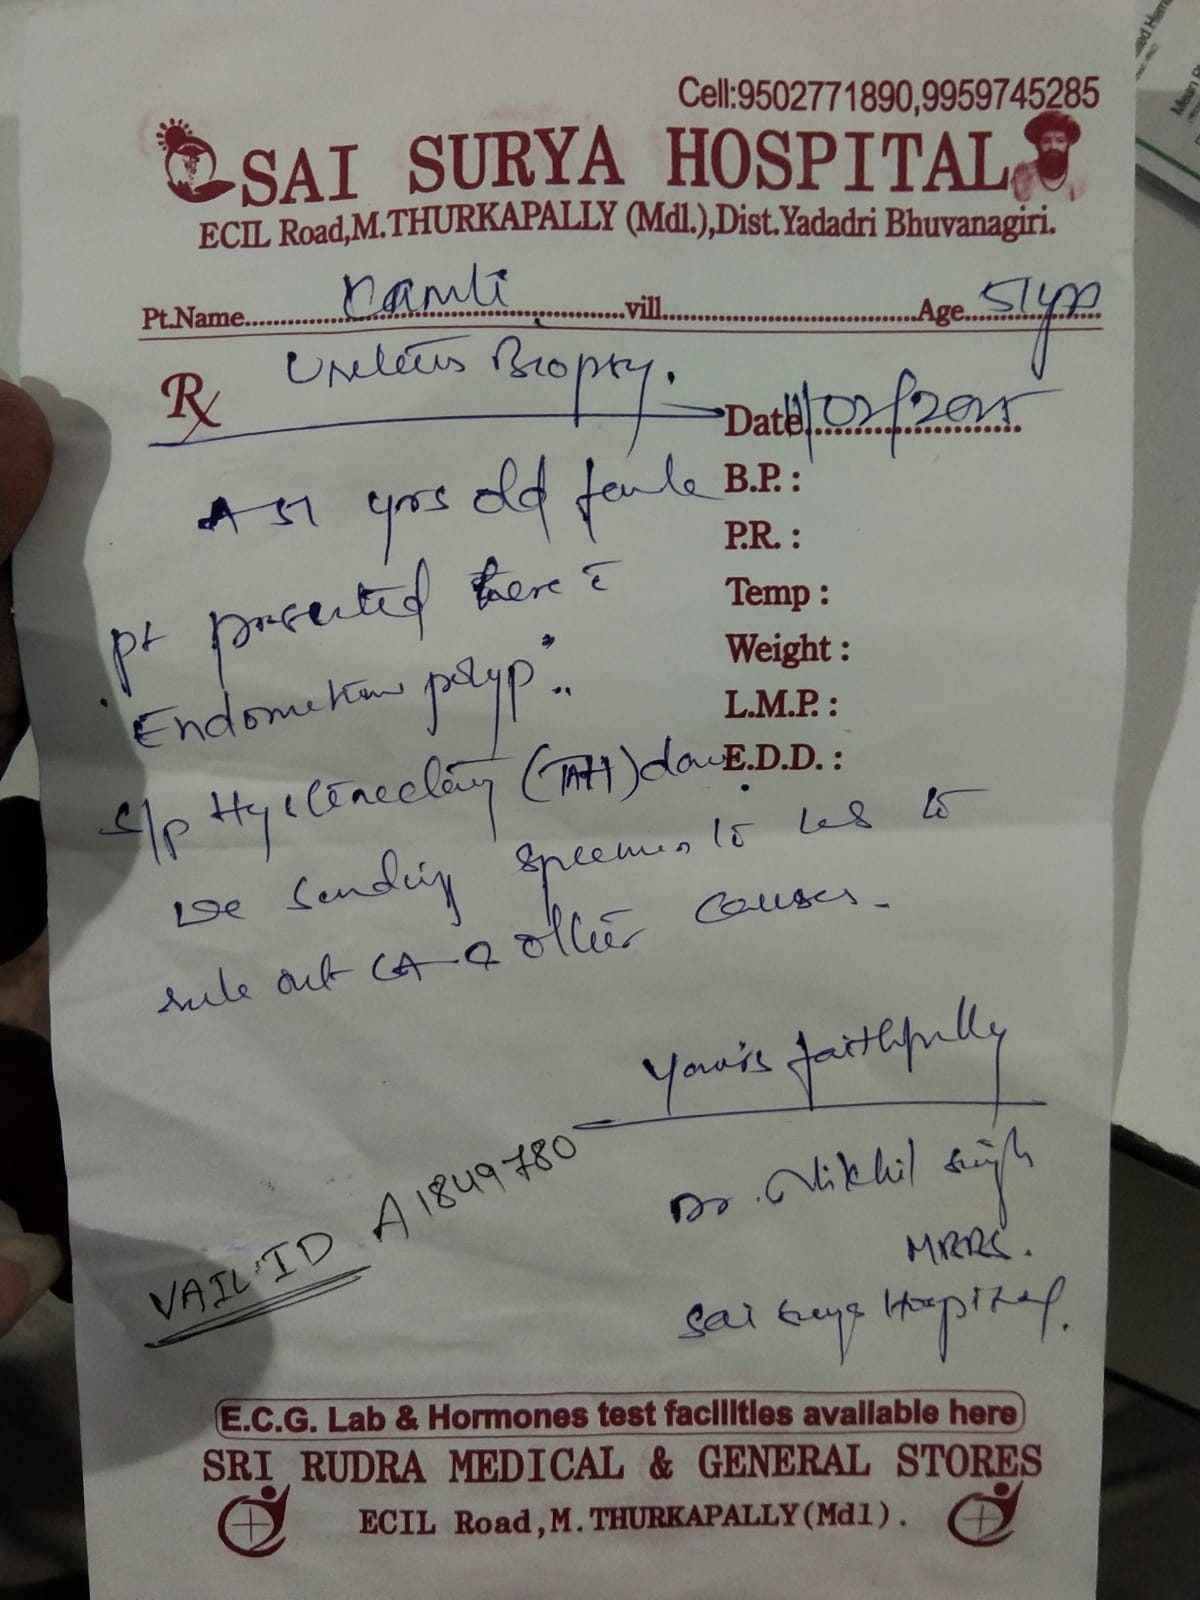 Cell:9502771890,9959745285
SAI SURYA HOSPITAL
ECIL Road,M.THURKAPALLY (Mdl.),Dist.Yadadri Bhuvanagiri.
Pt.Name.......... vill.......... Age.......... 51 yrs
Rx Biopsy.
Date 11/02/2025
A 51 yrs old female B.P. :
P.R. :
pt presented here c̄ Temp :
Endometrium polyp". Weight :
L.M.P. :
S/p Hysterectomy (TAH) done E.D.D. :
we sending specimen to to
rule out CA & other causes.
Yours faithfully
Dr. Nikhil Singh
MBBS.
Sai Surya Hospital.
VAIL ID A1849780
E.C.G. Lab & Hormones test facilities available here
SRI RUDRA MEDICAL & GENERAL STORES
ECIL Road,M.THURKAPALLY(Mdl).